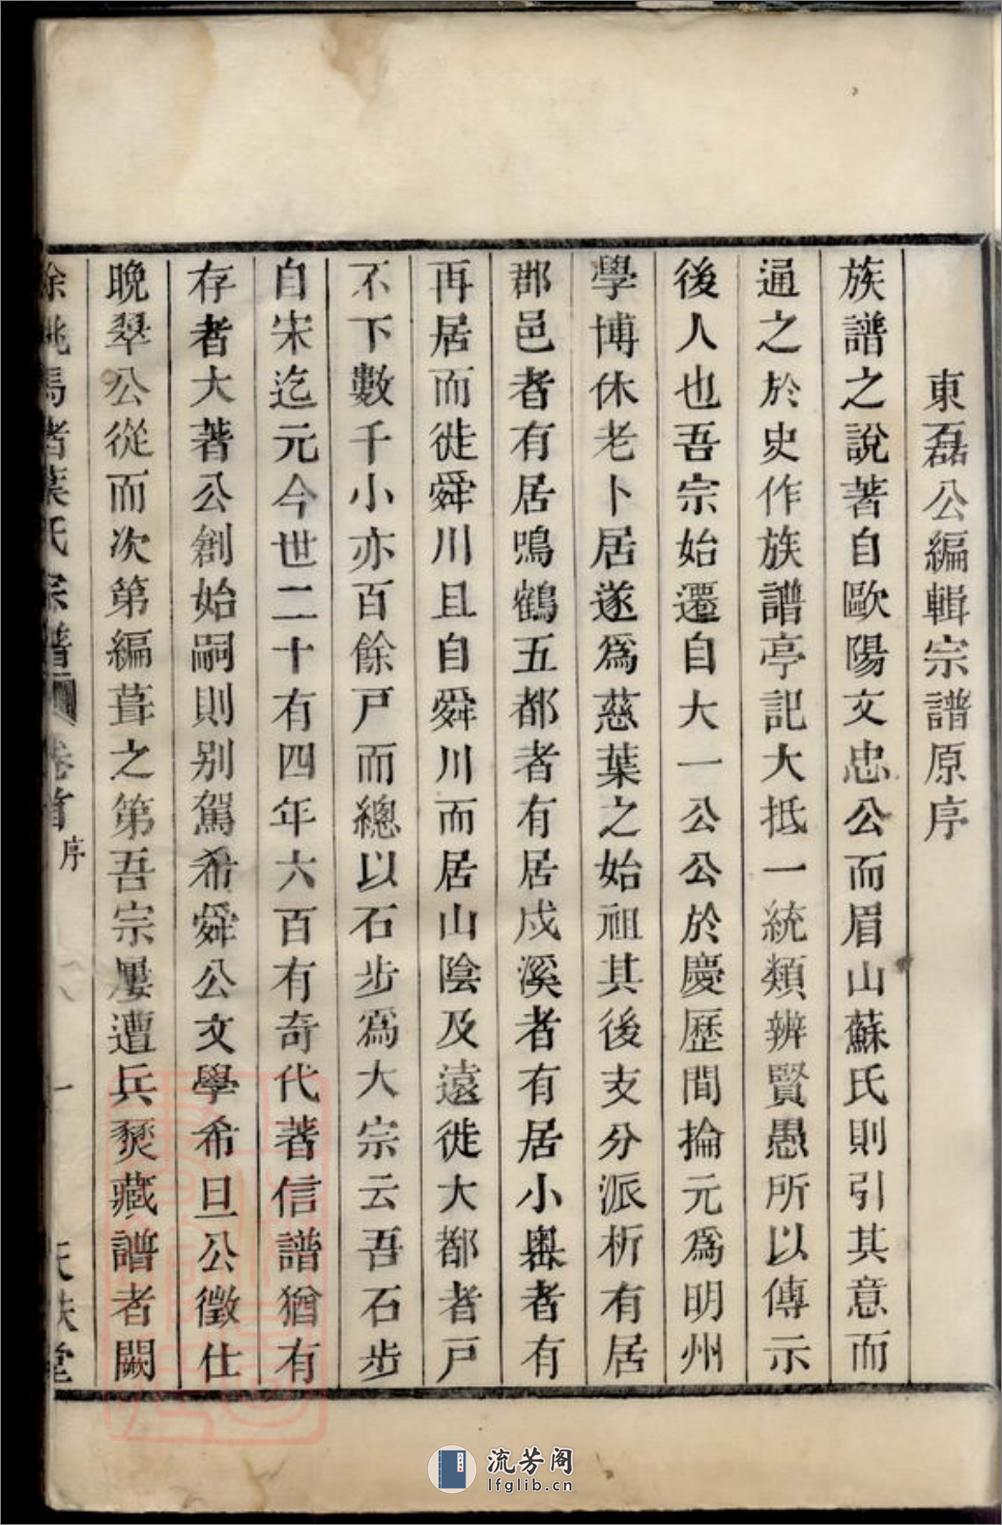 東磊公編輯宗譜原序
族譜之說著自歐陽文忠公而眉山蘇氏則引其意而
通之於史作族譜亭記大抵一統類辨賢愚所以傳示
後人也吾宗始遷自大一公公於慶歷間掄元爲明州
學博休老卜居遂爲慈葉之始祖其後支分派析有居
郡邑者有居鳴鶴五都者有居戍溪者有居小奧者有
再居而徙舜川且自舜川而居山陰及遠徙大都者戸
不下數千小亦百餘戸而總以石步爲大宗云吾石步
自宋迄元今世二十有四年六百有奇代著信譜猶有
存者大著公創始嗣則别駕希舜公文學希旦公徵仕
晚翠公從而次第編葺之第吾宗屢遭兵燹藏譜者闕
餘姚馬渚葉氏宗譜 卷首 序 一
流芳阁
lfglib.cn